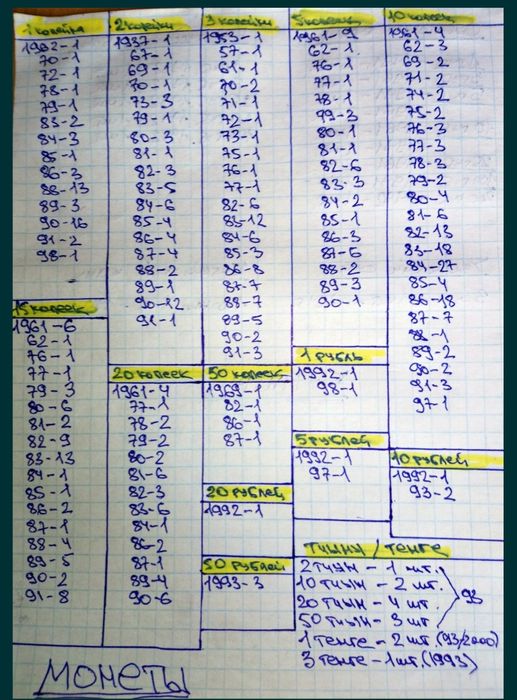 1 копейка
1962-1
70-1
72-1
78-1
79-1
83-2
84-3
85-1
86-3
88-13
89-3
90-16
91-2
98-1
2 копейки
1937-1
67-1
69-1
70-1
73-3
79-1
80-3
81-1
82-3
83-5
84-6
85-4
86-4
87-4
88-2
89-1
90-12
91-1
3 копейки
1953-1
57-1
61-1
70-2
71-1
72-1
73-1
75-1
76-1
77-1
82-6
83-12
84-6
85-3
86-8
87-7
88-7
89-5
90-2
91-3
5 копеек
1961-9
62-1
76-1
77-1
78-1
79-3
80-1
81-1
82-6
83-3
84-2
85-1
86-3
87-5
88-2
89-3
90-1
10 копеек
1961-4
62-3
69-2
71-2
74-2
75-2
76-3
77-3
78-3
79-2
80-4
81-6
82-13
83-18
84-27
85-4
86-18
87-7
88-1
89-2
90-2
91-3
97-1
15 копеек
1961-6
62-1
76-1
77-1
79-3
80-6
81-2
82-9
83-13
84-1
85-1
86-2
87-1
88-4
89-5
90-2
91-8
20 копеек
1961-4
77-1
78-2
79-2
80-2
81-6
82-3
83-6
84-1
86-2
87-1
89-4
90-6
50 копеек
1969-1
82-1
86-1
87-1
20 рублей
1992-1
50 рублей
1993-3
1 рубль
1992-1
98-1
5 рублей
1992-1
97-1
10 рублей
1992-1
93-2
тиыны / тенге
2 тиын - 1 шт.
10 тиын - 2 шт.
20 тиын - 4 шт.
50 тиын - 3 шт.
93
1 тенге - 2 шт. (93/2000)
3 тенге - 1 шт (1993)
МОНЕТЫ